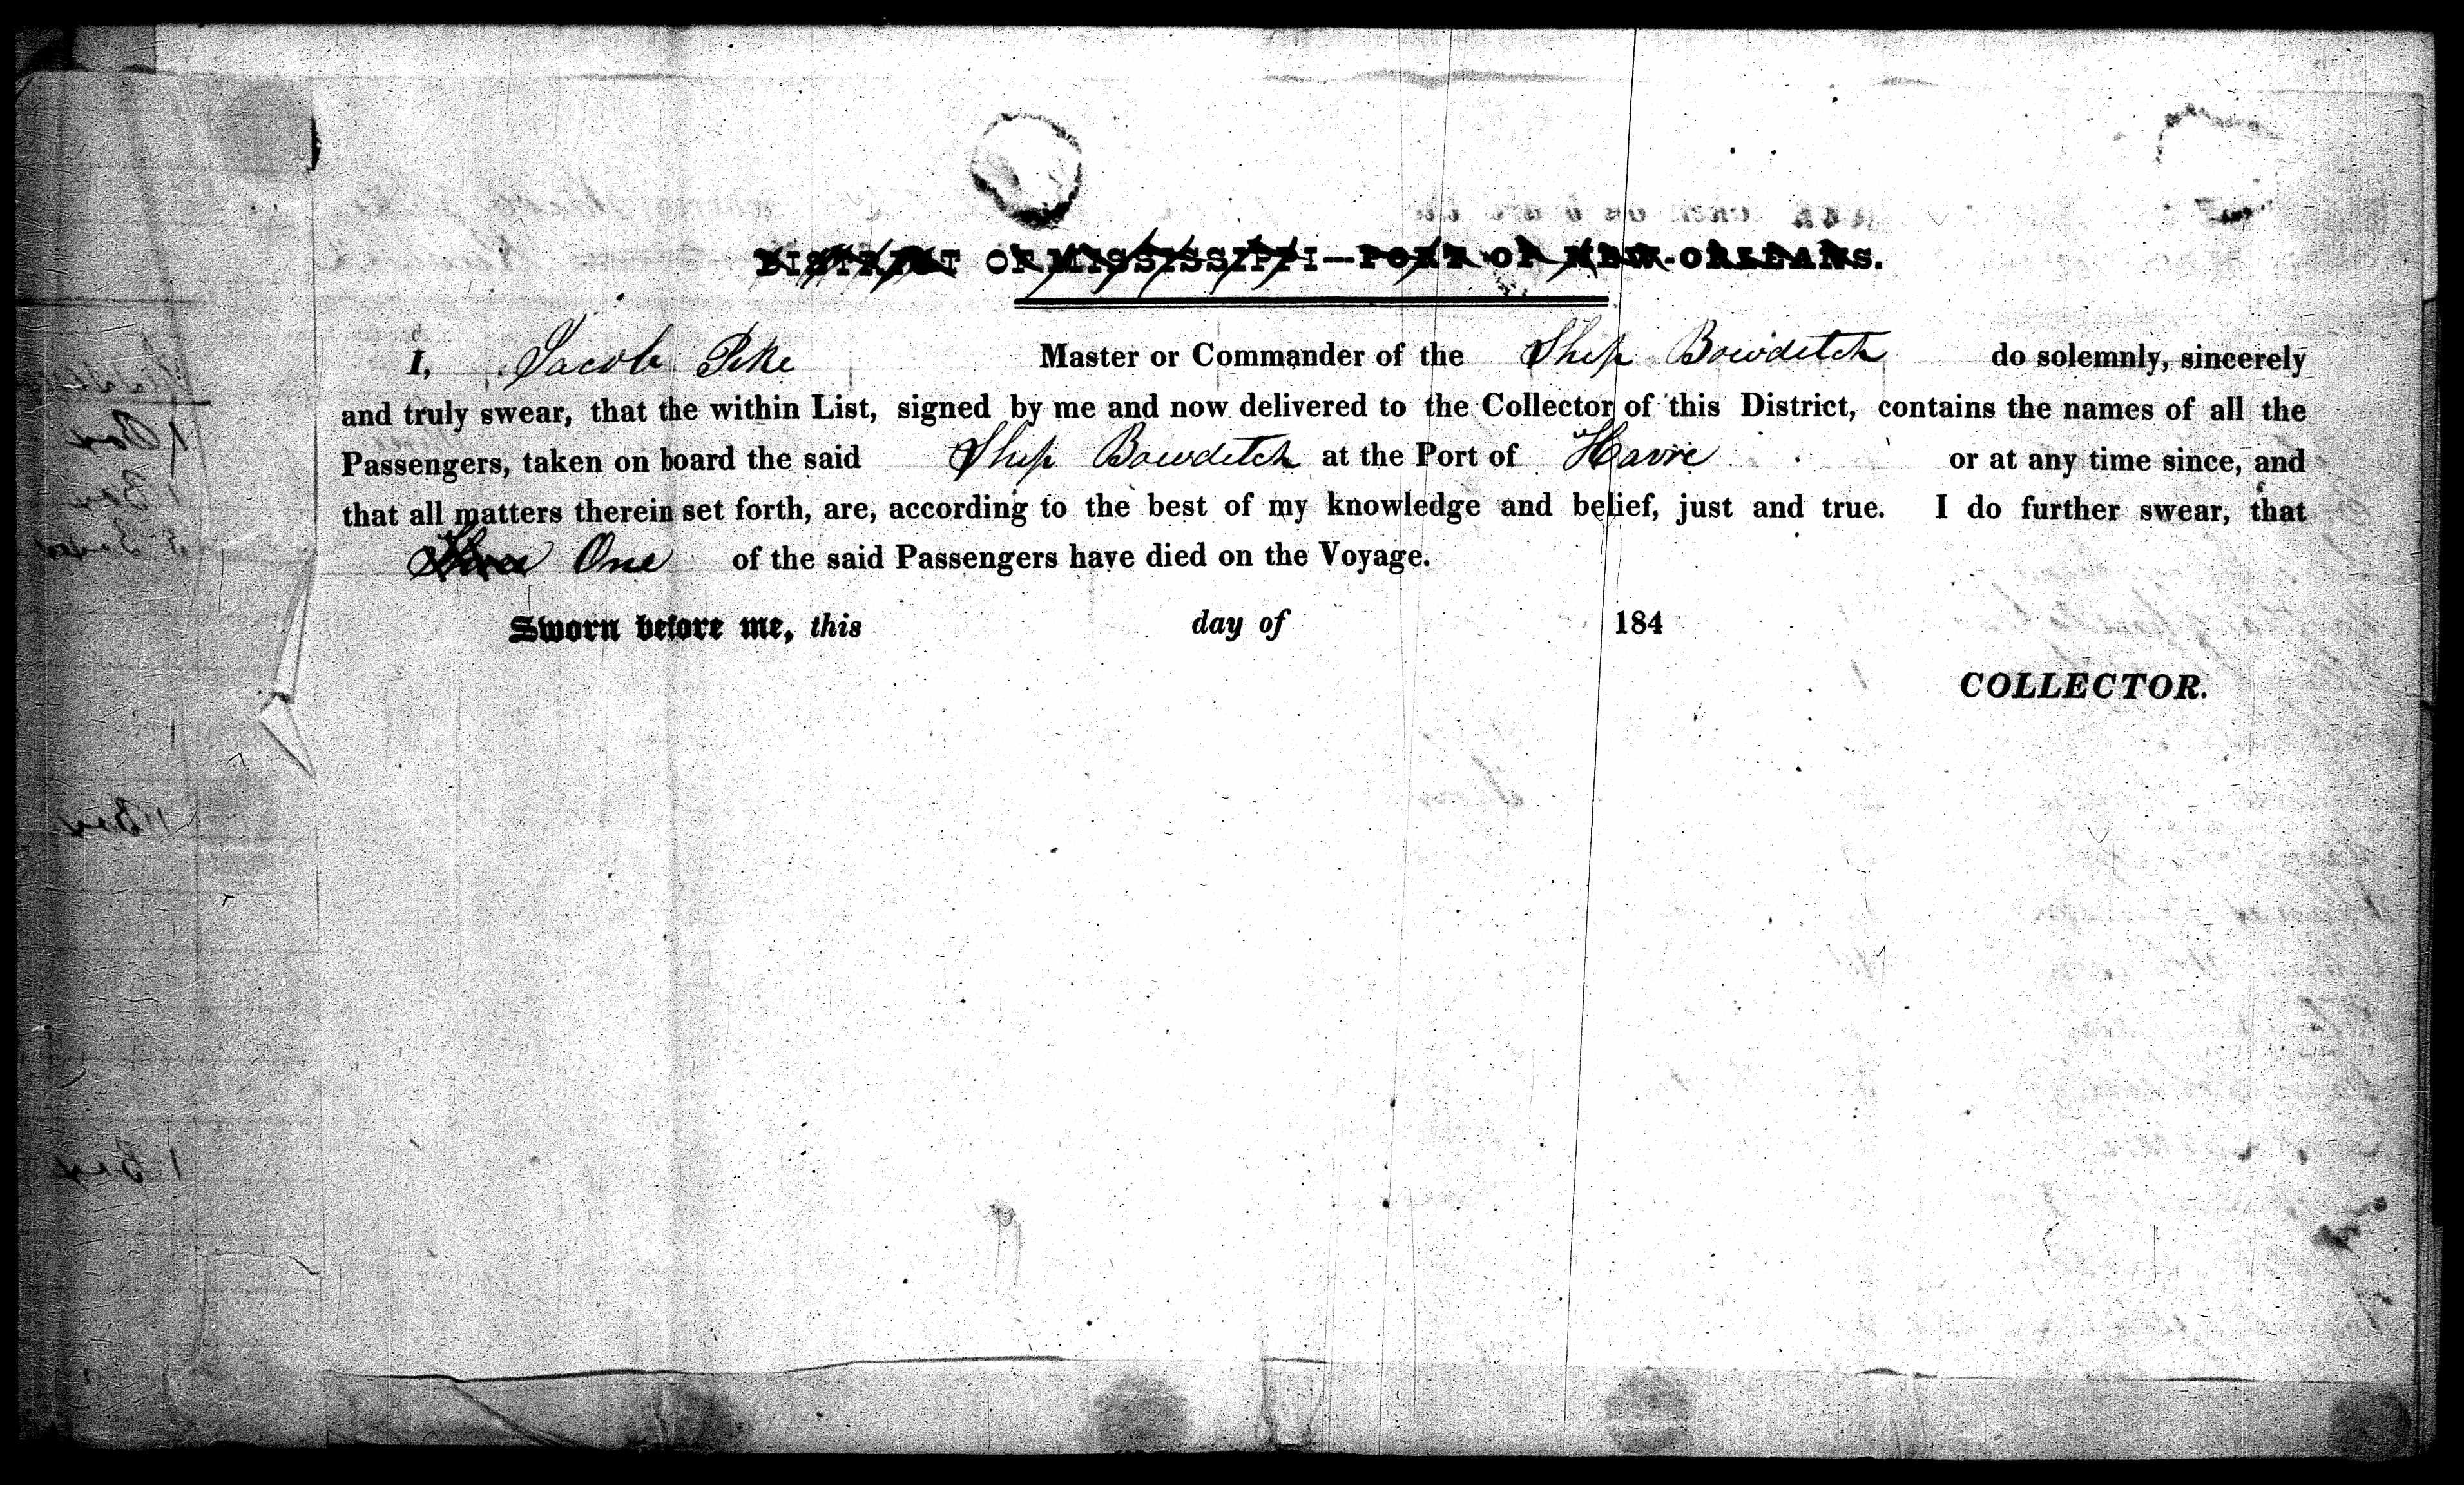 DISTRICT OF MISSISSIPPI—PORT OF NEW-ORLEANS.
I, Jacob Pike Master or Commander of the Ship Bowditch do solemnly, sincerely
and truly swear, that the within List, signed by me and now delivered to the Collector of this District, contains the names of all the
Passengers, taken on board the said Ship Bowditch at the Port of Havre or at any time since, and
that all matters therein set forth, are, according to the best of my knowledge and belief, just and true. I do further swear, that
One of the said Passengers have died on the Voyage.
Sworn before me, this day of 184
COLLECTOR.